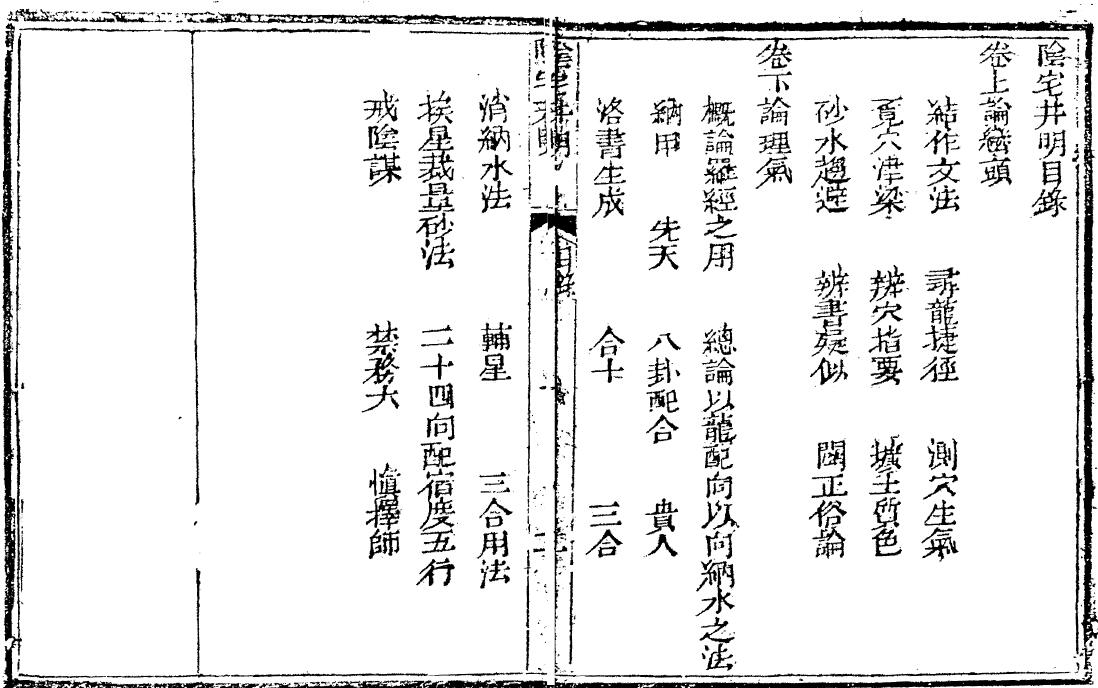 陰宅井明目錄
卷上論巒頭
結作文法 尋龍捷徑 測穴生氣
覓穴津梁 辨穴指要 壙土質色
砂水趨避 辨書疑似 闢正俗論
卷下論理氣
概論羅經之用 總論以龍配向以向納水之法
納甲 先天 八卦配合 貴人
洛書生成 合十 三合
目錄
消納水法 輔星 三合用法
挨星裁量砂法 二十四向配宿度五行
戒陰謀 禁務大 慎擇師